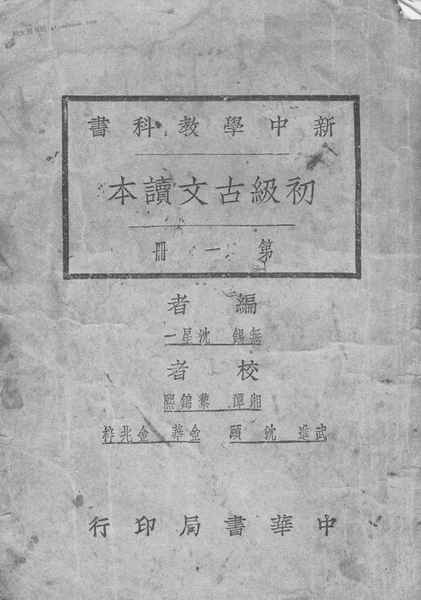 新中學教科書
初級古文讀本
第一冊
編者
無錫 沈星一
校者
湘潭 黎錦熙
武進 沈頤 金華 金兆梓
中華書局印行